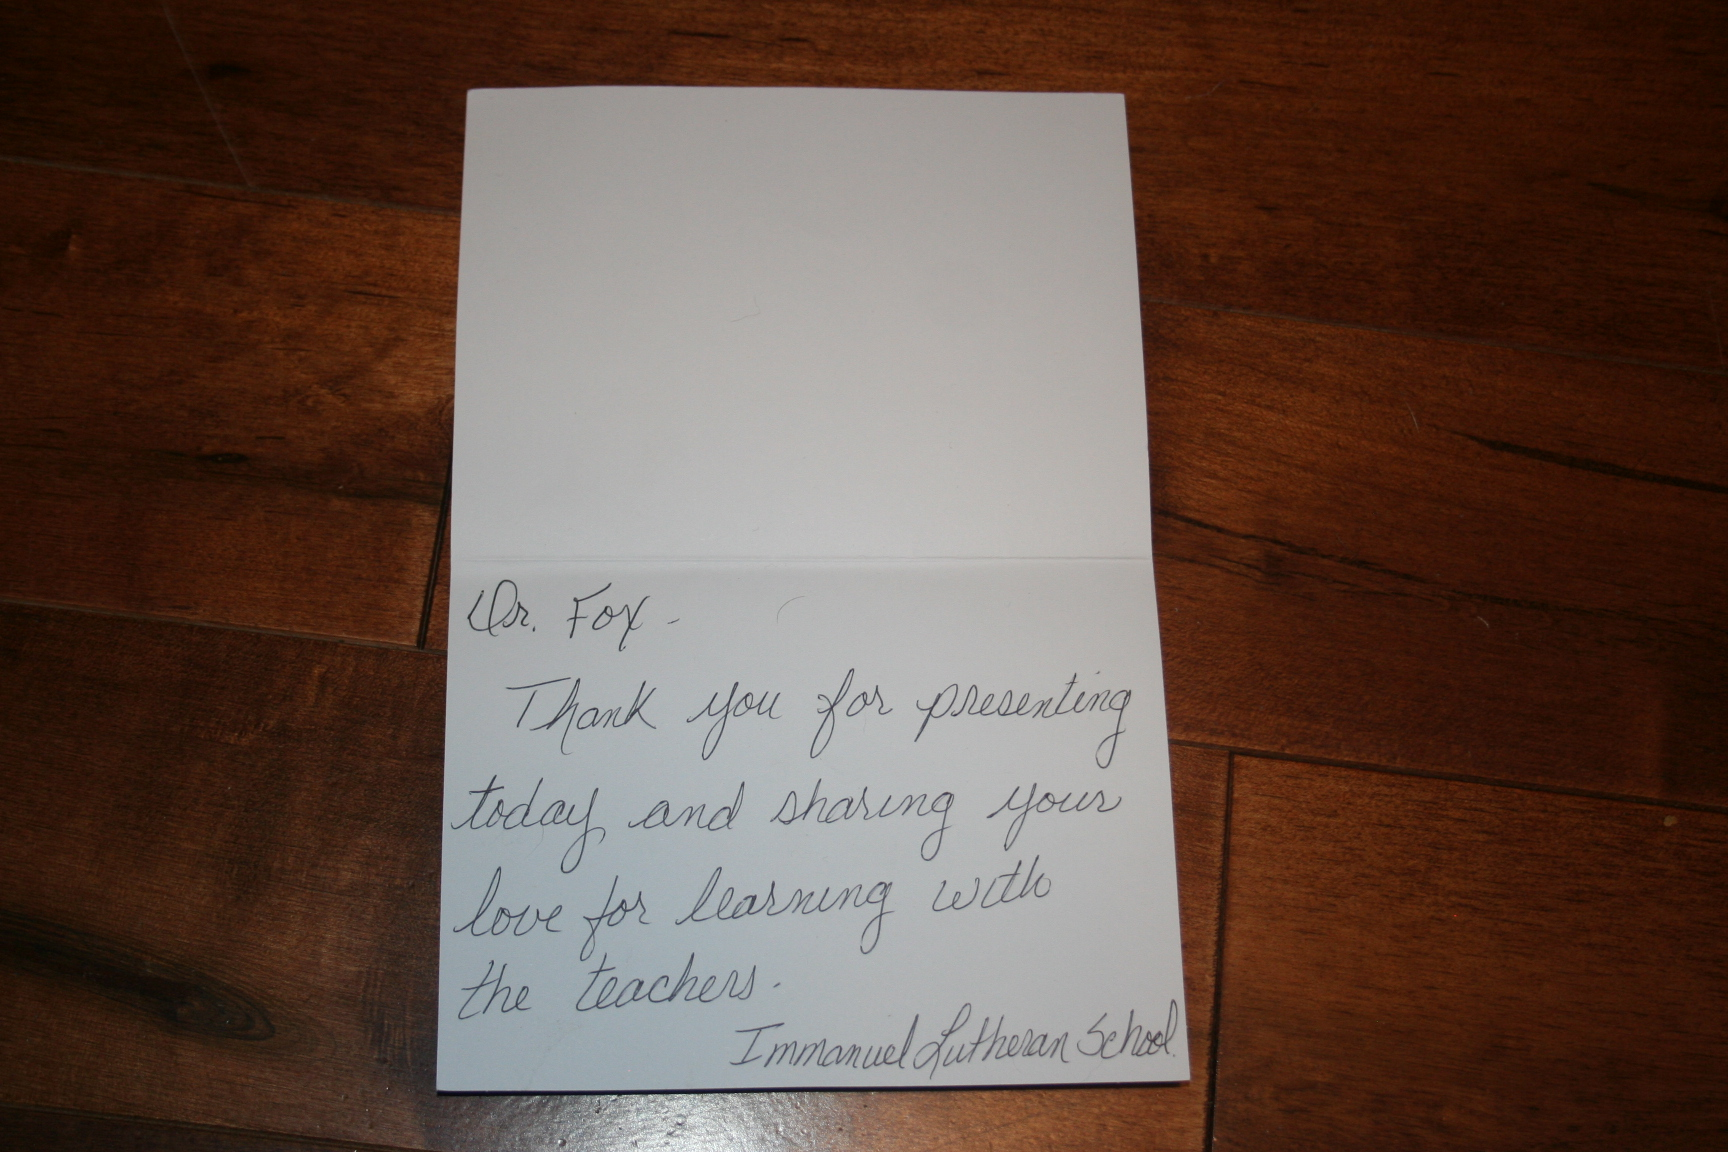 Dr. Fox -
Thank you for presenting
today and sharing your
love for learning with
the teachers.
Immanuel Lutheran School.